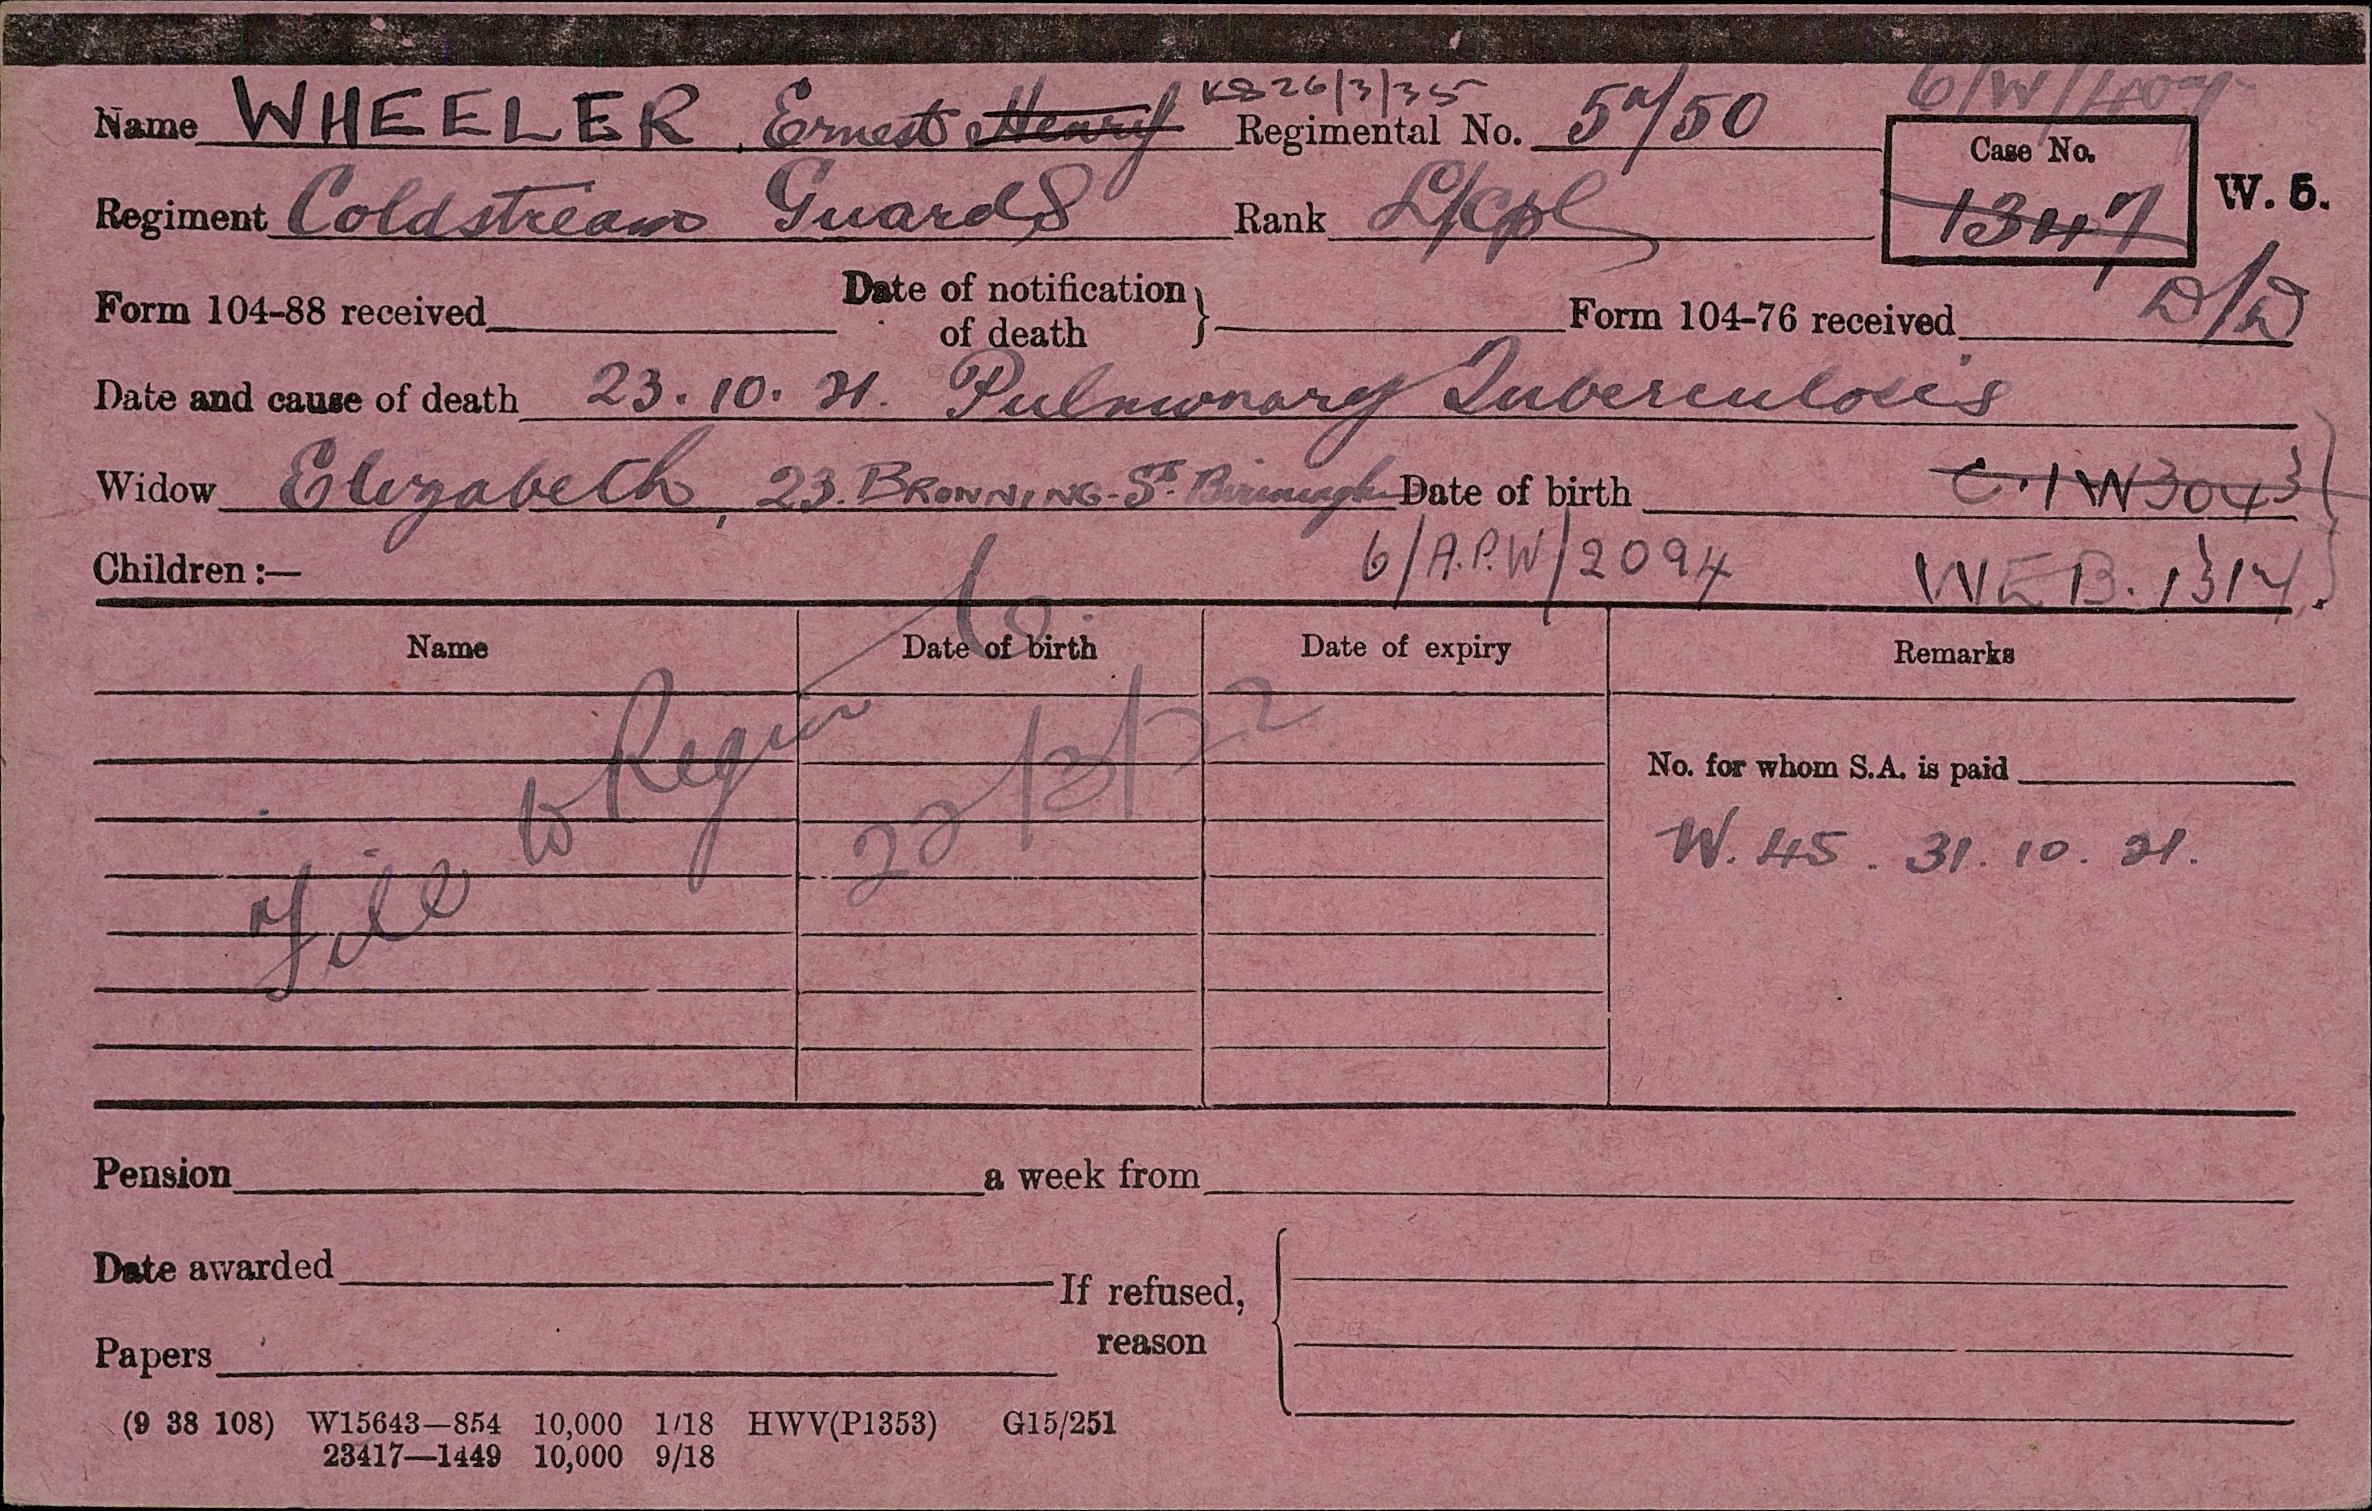 K8 26/3/35
Name WHEELER, Ernest Henry Regimental No. 50 Case No.
Regiment Coldstream Guards Rank L/Cpl 1347 W. 5.
D/D
Form 104-88 received Date of notification of death } Form 104-76 received
Date and cause of death 23.10.21. Pulmonary Tuberculosis
Widow Elizabeth, 23. BROWNING-ST. Date of birth C.1W3043
Children :— 6/A.P.W/2094 WEB.
Name Date of birth Date of expiry Remarks
File to Region 6. 22/3/22
No. for whom S.A. is paid
W.45. 31.10.21.
Pension a week from
Date awarded If refused,
Papers reason
(9 38 108) W15643—854 10,000 1/18 HWV(P1353) G15/251
23417—1449 10,000 9/18